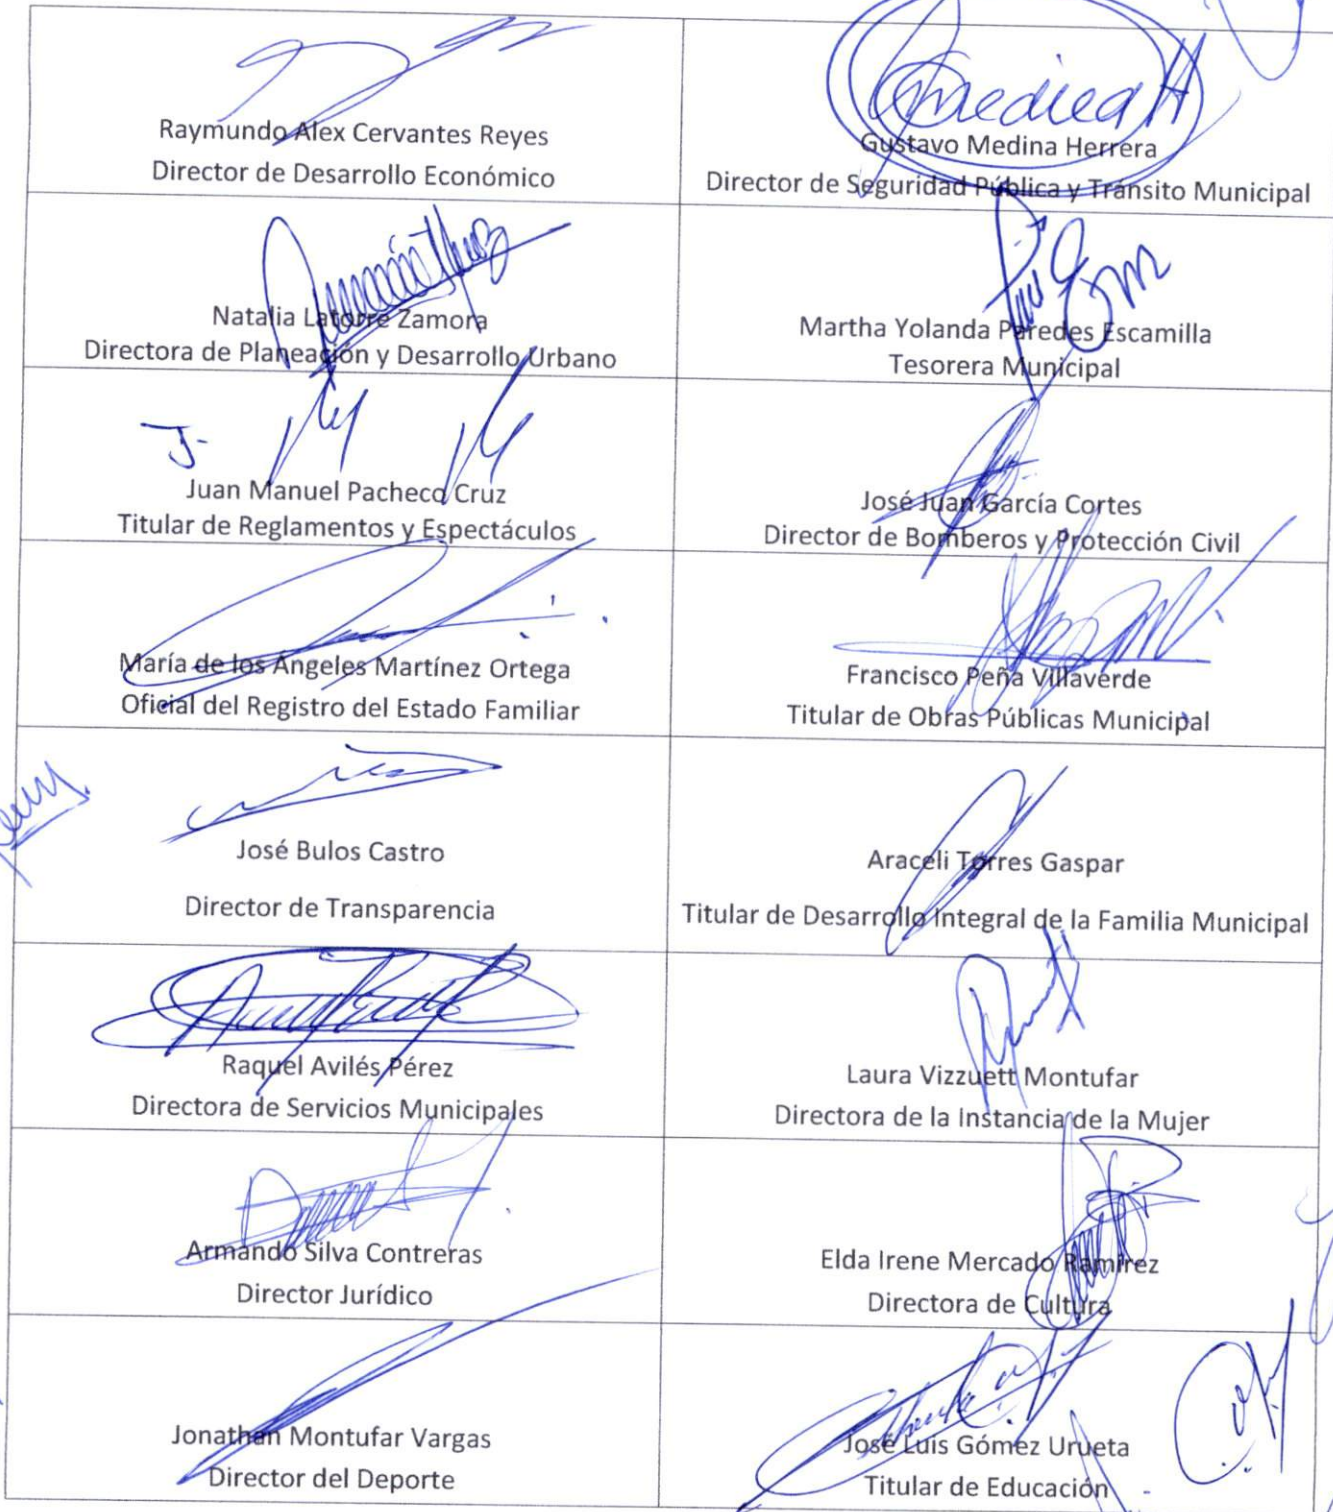 Raymundo Alex Cervantes Reyes
Director de Desarrollo Económico
Gustavo Medina Herrera
Director de Seguridad Pública y Tránsito Municipal
Natalia Latorre Zamora
Directora de Planeación y Desarrollo Urbano
Martha Yolanda Paredes Escamilla
Tesorera Municipal
Juan Manuel Pacheco Cruz
Titular de Reglamentos y Espectáculos
José Juan García Cortes
Director de Bomberos y Protección Civil
María de los Ángeles Martínez Ortega
Oficial del Registro del Estado Familiar
Francisco Peña Villaverde
Titular de Obras Públicas Municipal
José Bulos Castro
Director de Transparencia
Araceli Torres Gaspar
Titular de Desarrollo Integral de la Familia Municipal
Raquel Avilés Pérez
Directora de Servicios Municipales
Laura Vizzuett Montufar
Directora de la Instancia de la Mujer
Armando Silva Contreras
Director Jurídico
Elda Irene Mercado Ramírez
Directora de Cultura
Jonathan Montufar Vargas
Director del Deporte
José Luis Gómez Urueta
Titular de Educación